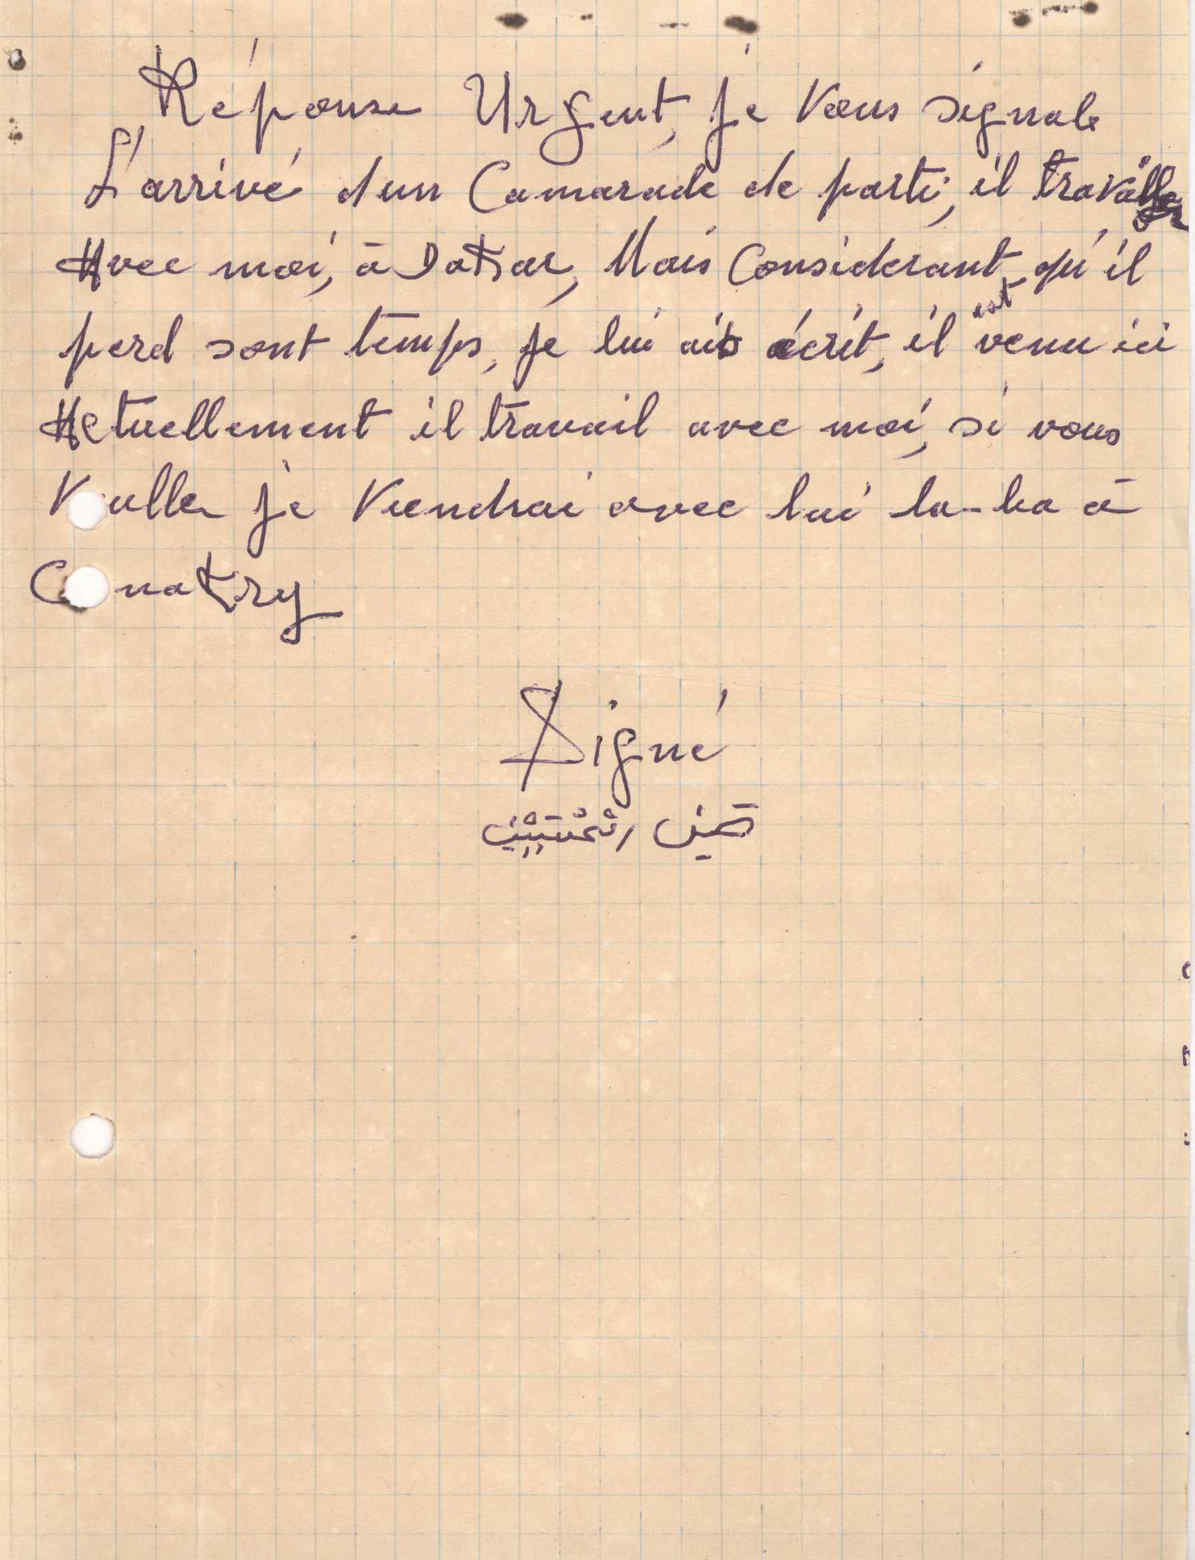 Réponse Urgent, je vous signale
L'arrivé d'un Camarade de parti, il travailler
Avec moi, à Dakar, Mais Considerant qu'il
perd sont temps, je lui ais écrit, il est venu ici
Actuellement il travail avec moi, si vous
Vouller je Viendrai avec lui la-ba à
Conakry
Signé